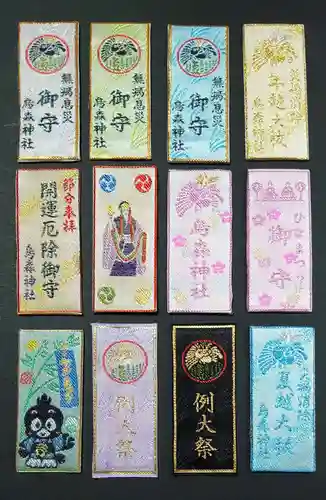 無病息災
御守
烏森神社
無病息災
御守
烏森神社
無病息災
御守
烏森神社
年越大祓
烏森神社
節分参拝
開運厄除御守
烏森神社
烏森神社
ひなまつり
御守
例大祭
例大祭
夏越大祓
烏森神社